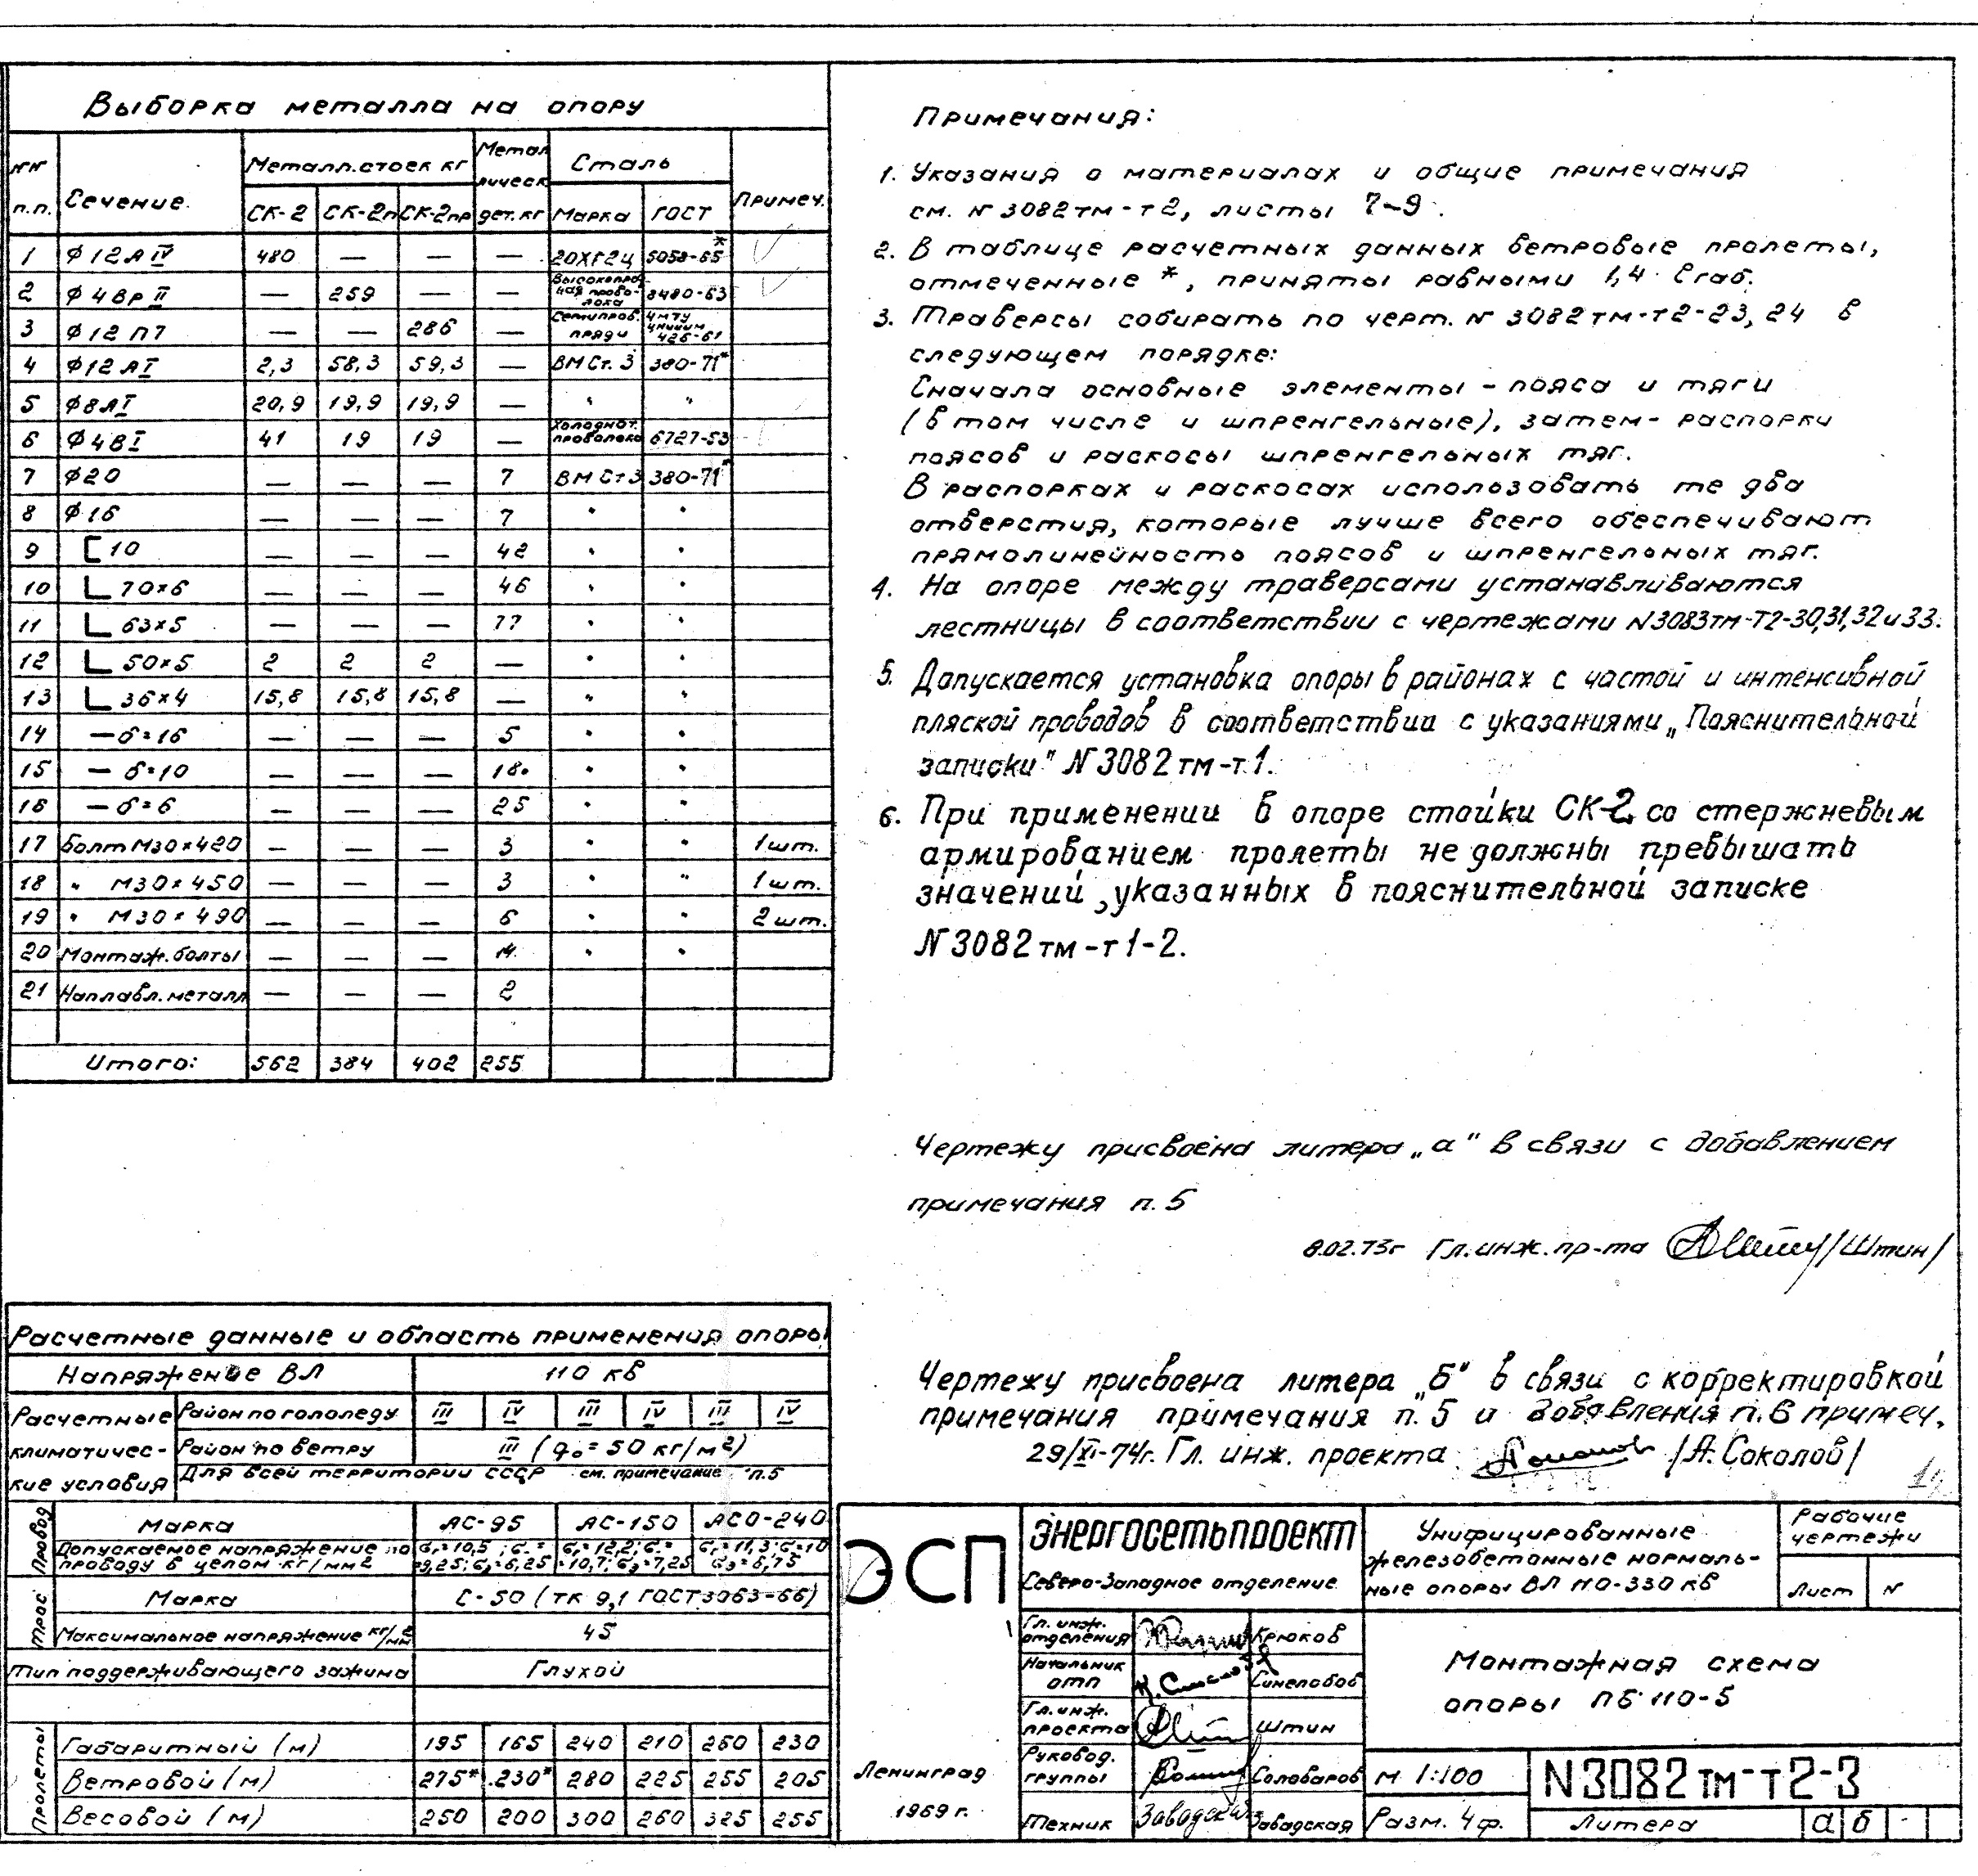 Выборка металла на опору
NN п.п. | Сечение | Металл. стоек кг | Металлическ. дет. кг | Сталь | Примеч.
СК-2 | СК-2п | СК-2пр | Марка | ГОСТ
1 | Ф12АIV | 480 | — | — | — | 20ХГ2Ц | 5058-65*
2 | Ф4ВрII | — | 259 | — | — | Высокопрочная проволока | 8480-63
3 | Ф12П7 | — | — | 286 | — | Семипров. пряди | ЧМТУ ЦНИИЧМ 426-61
4 | Ф12АI | 2,3 | 58,3 | 59,3 | — | ВМСт.3 | 380-71*
5 | Ф8АI | 20,9 | 19,9 | 19,9 | — | " | "
6 | Ф4ВI | 41 | 19 | 19 | — | Холоднот. проволока | 6727-53
7 | Ф20 | — | — | — | 7 | ВМСт3 | 380-71*
8 | Ф16 | — | — | — | 7 | " | "
9 | [10 | — | — | — | 42 | " | "
10 | L 70×6 | — | — | — | 46 | " | "
11 | L 63×5 | — | — | — | 77 | " | "
12 | L 50×5 | 2 | 2 | 2 | — | " | "
13 | L 36×4 | 15,8 | 15,8 | 15,8 | — | " | "
14 | — δ=16 | — | — | — | 5 | " | "
15 | — δ=10 | — | — | — | 18 | " | "
16 | — δ=6 | — | — | — | 25 | " | "
17 | Болт М30×420 | — | — | — | 3 | " | " | 1 шт.
18 | " М30×450 | — | — | — | 3 | " | " | 1 шт.
19 | " М30×490 | — | — | — | 6 | " | " | 2 шт.
20 | Монтаж. болты | — | — | — | 14 | " | "
21 | Наплавл. металл | — | — | — | 2
Итого: | 562 | 384 | 402 | 255
Примечания:
1. Указания о материалах и общие примечания
см. N 3082тм-т2, листы 7-9.
2. В таблице расчетных данных ветровые пролеты,
отмеченные *, приняты равными 1,4 ℓгаб.
3. Траверсы собирать по черт. N 3082тм-т2-23, 24 в
следующем порядке:
Сначала основные элементы - пояса и тяги
(в том числе и шпренгельные), затем - распорки
поясов и раскосы шпренгельных тяг.
В распорках и раскосах использовать те два
отверстия, которые лучше всего обеспечивают
прямолинейность поясов и шпренгельных тяг.
4. На опоре между траверсами устанавливаются
лестницы в соответствии с чертежами N3083тм-Т2-30,31,32 и 33.
5. Допускается установка опоры в районах с частой и интенсивной
пляской проводов в соответствии с указаниями „Пояснительной
записки" N 3082тм-т1.
6. При применении в опоре стойки СК-2 со стержневым
армированием пролеты не должны превышать
значений, указанных в пояснительной записке
N 3082тм-т1-2.
Чертежу присвоена литера „а" в связи с добавлением
примечания п. 5
8.02.73г Гл. инж. пр-та /Штин/
Чертежу присвоена литера „Б" в связи с корректировкой
примечания примечания п. 5 и добавления п. 6 примеч.
29/XI-74г. Гл. инж. проекта /А. Соколов/
Расчетные данные и область применения опоры
Напряжение ВЛ | 110 кв
Расчетные климатические условия | Район по гололеду | III | IV | III | IV | III | IV
Район по ветру | III (q₀=50 кг/м²)
Для всей территории СССР см. примечание п.5
Провод | Марка | АС-95 | АС-150 | АСО-240
Допускаемое напряжение по проводу в целом кг/мм2
Трос | Марка | С-50 (ТК 9,1 ГОСТ 3063-66)
Максимальное напряжение кг/мм2 | 45
Тип поддерживающего зажима | Глухой
Пролеты | Габаритный (м) | 195 | 165 | 240 | 210 | 260 | 230
Ветровой (м) | 275* | 230* | 280 | 225 | 255 | 205
Весовой (м) | 250 | 200 | 300 | 260 | 325 | 255
ЭСП
Ленинград
1969 г.
ЭНЕРГОСЕТЬПРОЕКТ
Северо-Западное отделение
Унифицированные
железобетонные нормаль-
ные опоры ВЛ 110-330 кв
Рабочие чертежи
Лист | N
Гл. инж. отделения | Крюков
Начальник ОТП | Синелобов
Гл. инж. проекта | Штин
Руковод. группы | Солобаров
Техник | Завадская
Монтажная схема
опоры ПБ 110-5
М 1:100
Разм. 4 ф.
N3082тм-т2-3
Литера | а | б